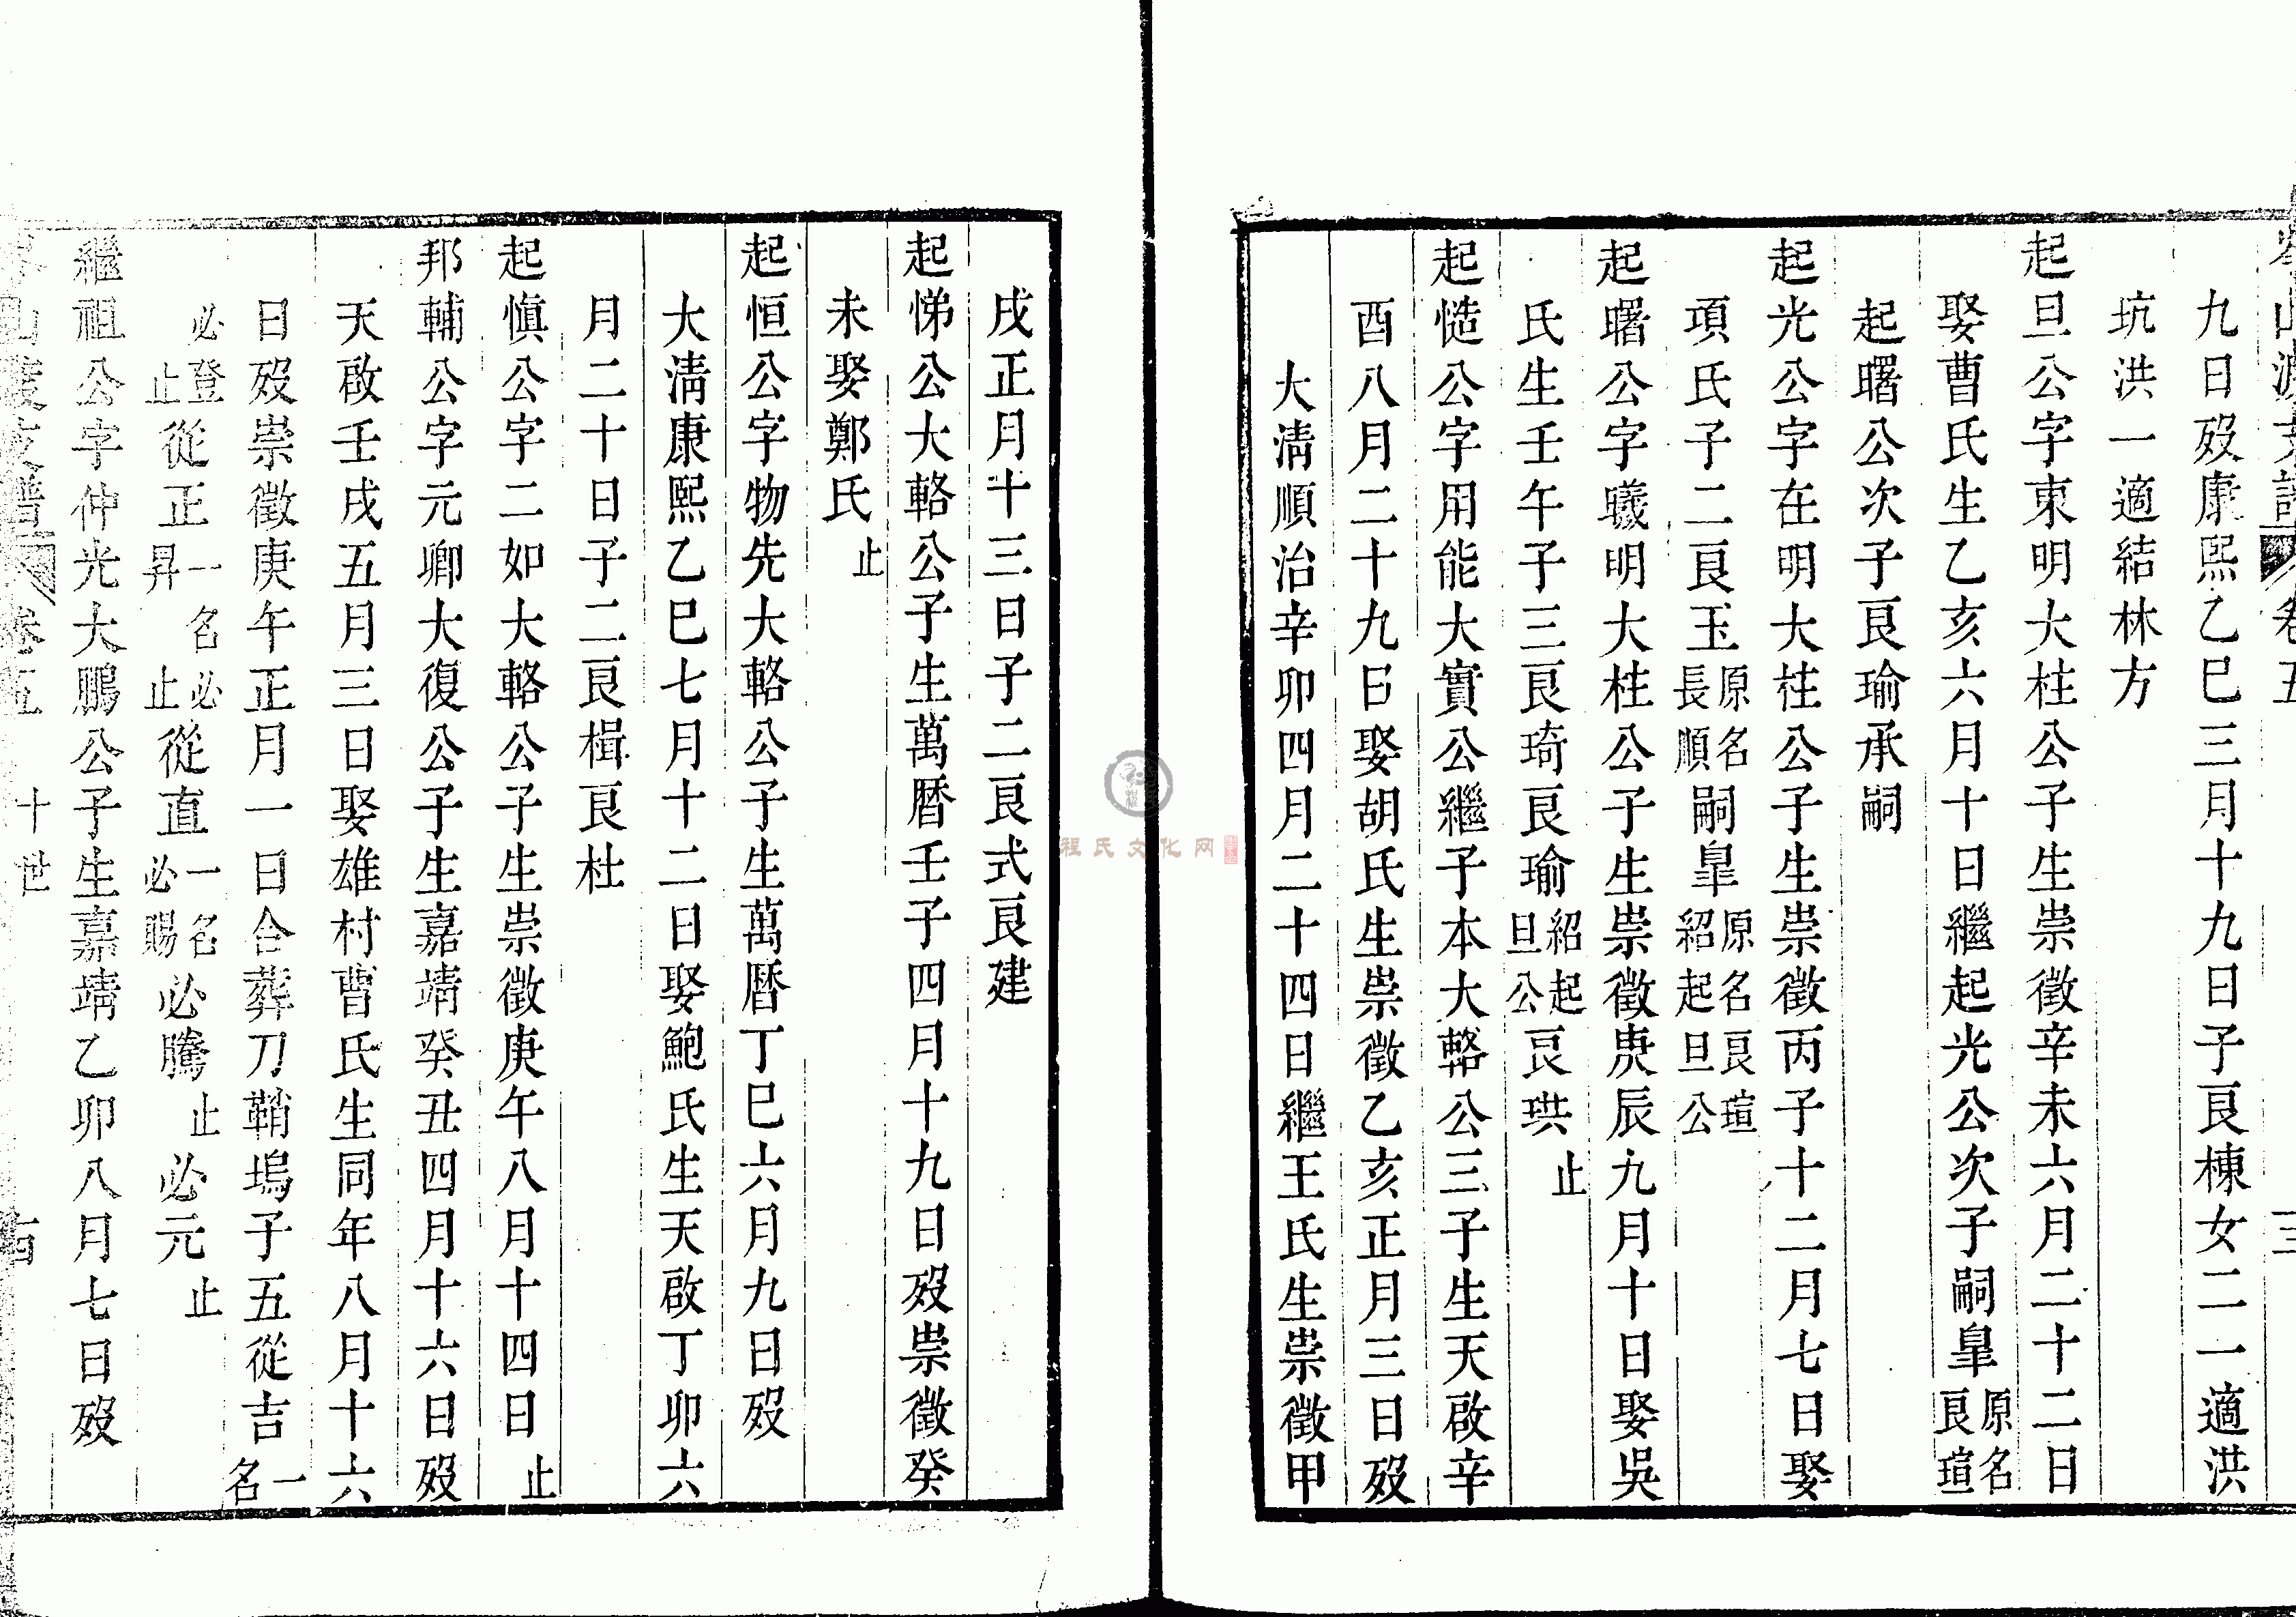 山渡支譜 卷五
九日歿康熙乙巳三月十九日子良棟女二一適洪
坑洪一適結林方
起旦公字東明大柱公子生崇徵辛未六月二十二日
娶曹氏生乙亥六月十日繼起光公次子嗣臯原名良瑄
起曙公次子良瑜承嗣
起光公字在明大柱公子生崇徵丙子十二月七日娶
項氏子二良玉原名長順嗣臯原名良瑄紹起旦公
起曙公字曦明大柱公子生崇徵庚辰九月十日娶吳
氏生壬午子三良琦良瑜紹起旦公良珙止
起慥公字用能大實公繼子本大輅公三子生天啟辛
酉八月二十九日娶胡氏生崇徵乙亥正月三日歿
大清順治辛卯四月二十四日繼王氏生崇徵甲
戌正月十三日子二良式良建
起悌公大輅公子生萬曆壬子四月十九日歿崇徵癸
未娶鄭氏止
起恒公字物先大輅公子生萬曆丁巳六月九日歿
大清康熙乙巳七月十二日娶鮑氏生天啟丁卯六
月二十日子二良楫良杜
起愼公字二如大輅公子生崇徵庚午八月十四日止
邦輔公字元卿大復公子生嘉靖癸丑四月十六日歿
天啟壬戌五月三日娶雄村曹氏生同年八月十六
日歿崇徵庚午正月一日合葬刀鞘塢子五從吉一名
必登止從正一名昇必止從直一名必賜必騰止必元止
繼祖公字仲光大鵬公子生嘉靖乙卯八月七日歿
山渡支譜 卷五 十世